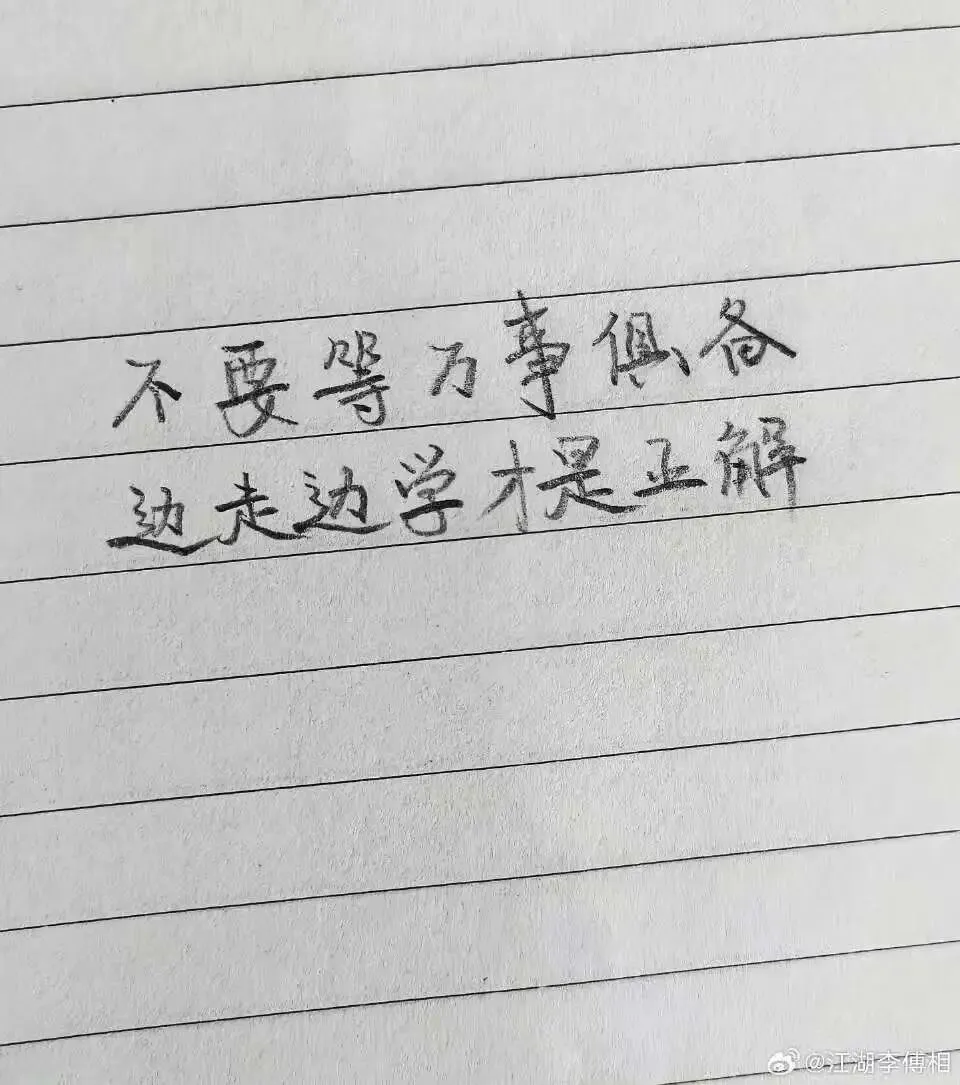 不要等万事俱备
边走边学才是正解
@江湖李傅相